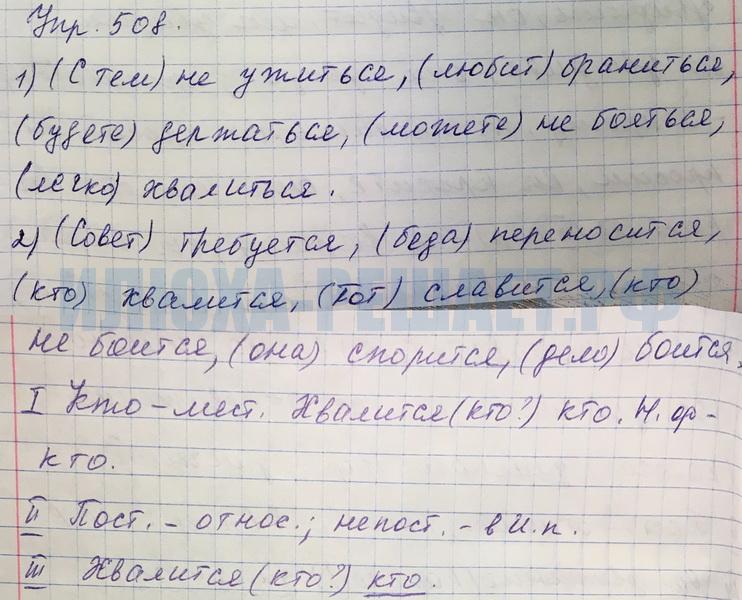 Упр. 508.
1) (С тем) не ужиться, (любит) браниться,
(будете) держаться, (можете) не бояться,
(легко) хвалиться.
2) (Совет) требуется, (беда) переносится,
ИЛЮХА-РЕШАЕТ.РФ
(кто) хвалится, (тот) славится, (кто)
не боится, (она) спорится, (дело) боится.
I Кто – мест. Хвалится (кто?) кто. Н. ф –
кто.
II Пост. – относ.; непост. – в И.п.
III Хвалится (кто?) кто.